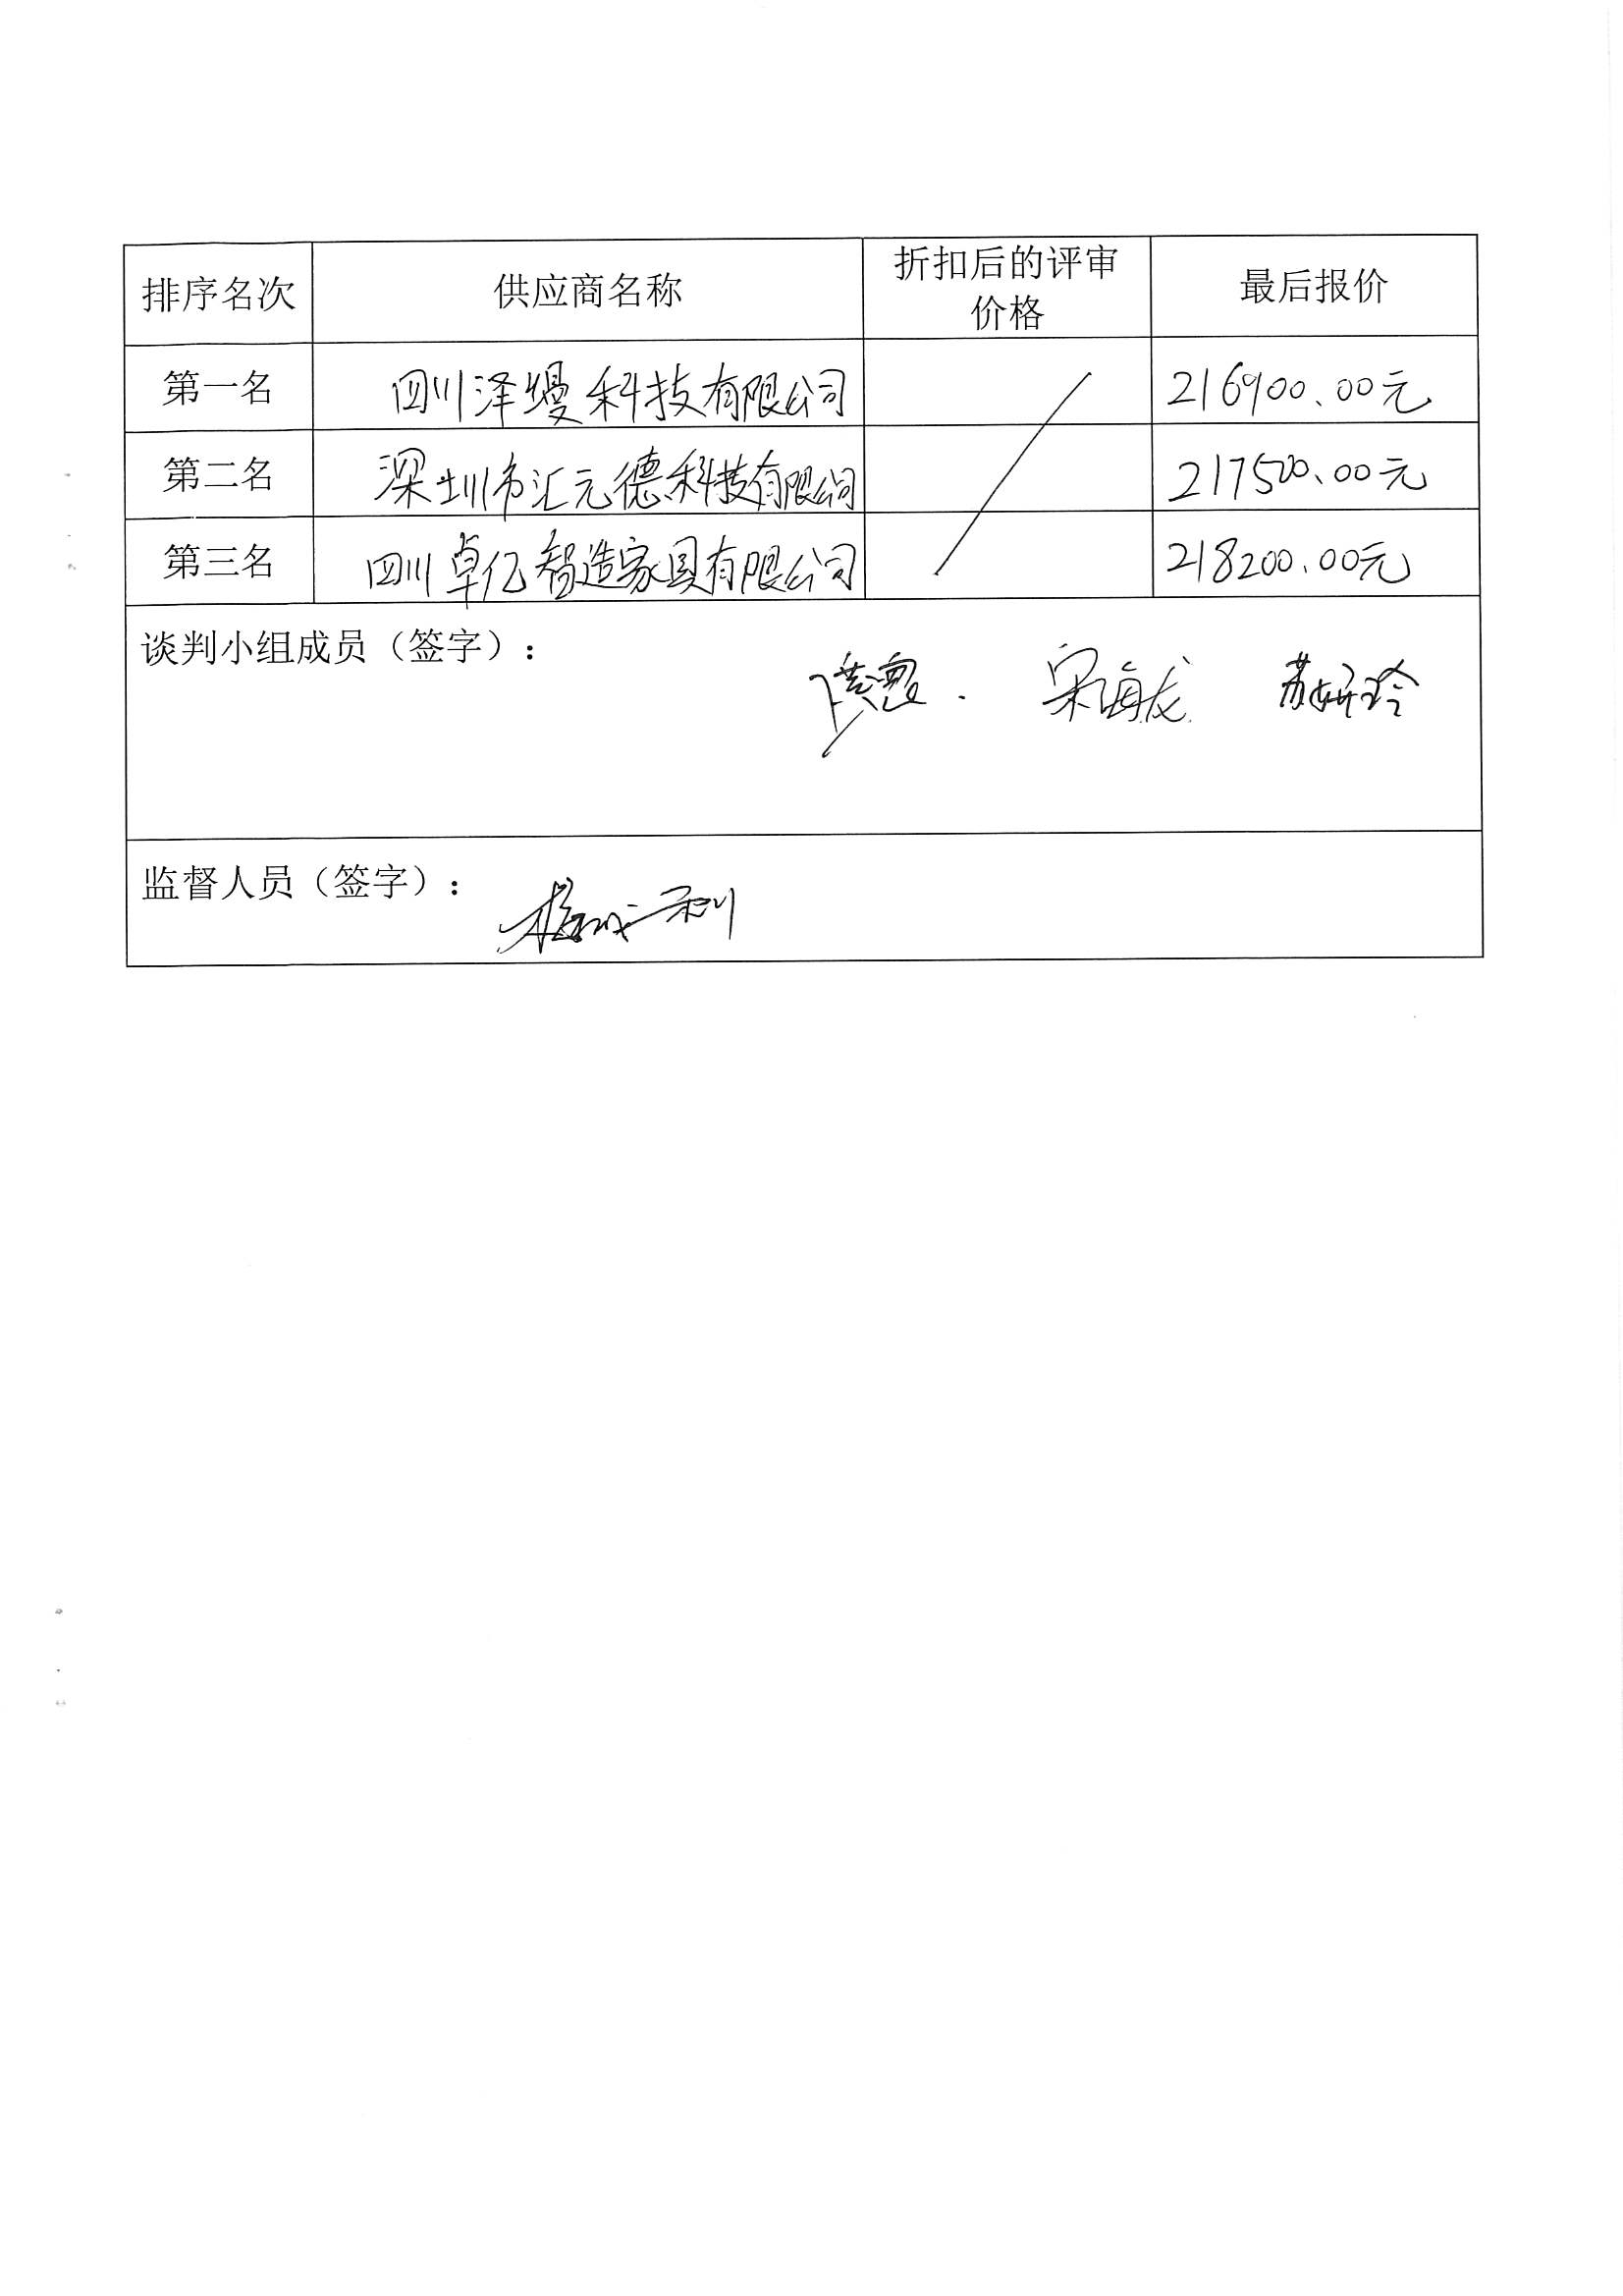 排序名次 供应商名称 折扣后的评审价格 最后报价
第一名 四川泽熳科技有限公司 216900.00元
第二名 深圳市汇元德科技有限公司 217500.00元
第三名 四川卓亿智造家具有限公司 / 218200.00元
谈判小组成员（签字）：
宋海龙 苏妍玲
监督人员（签字）：